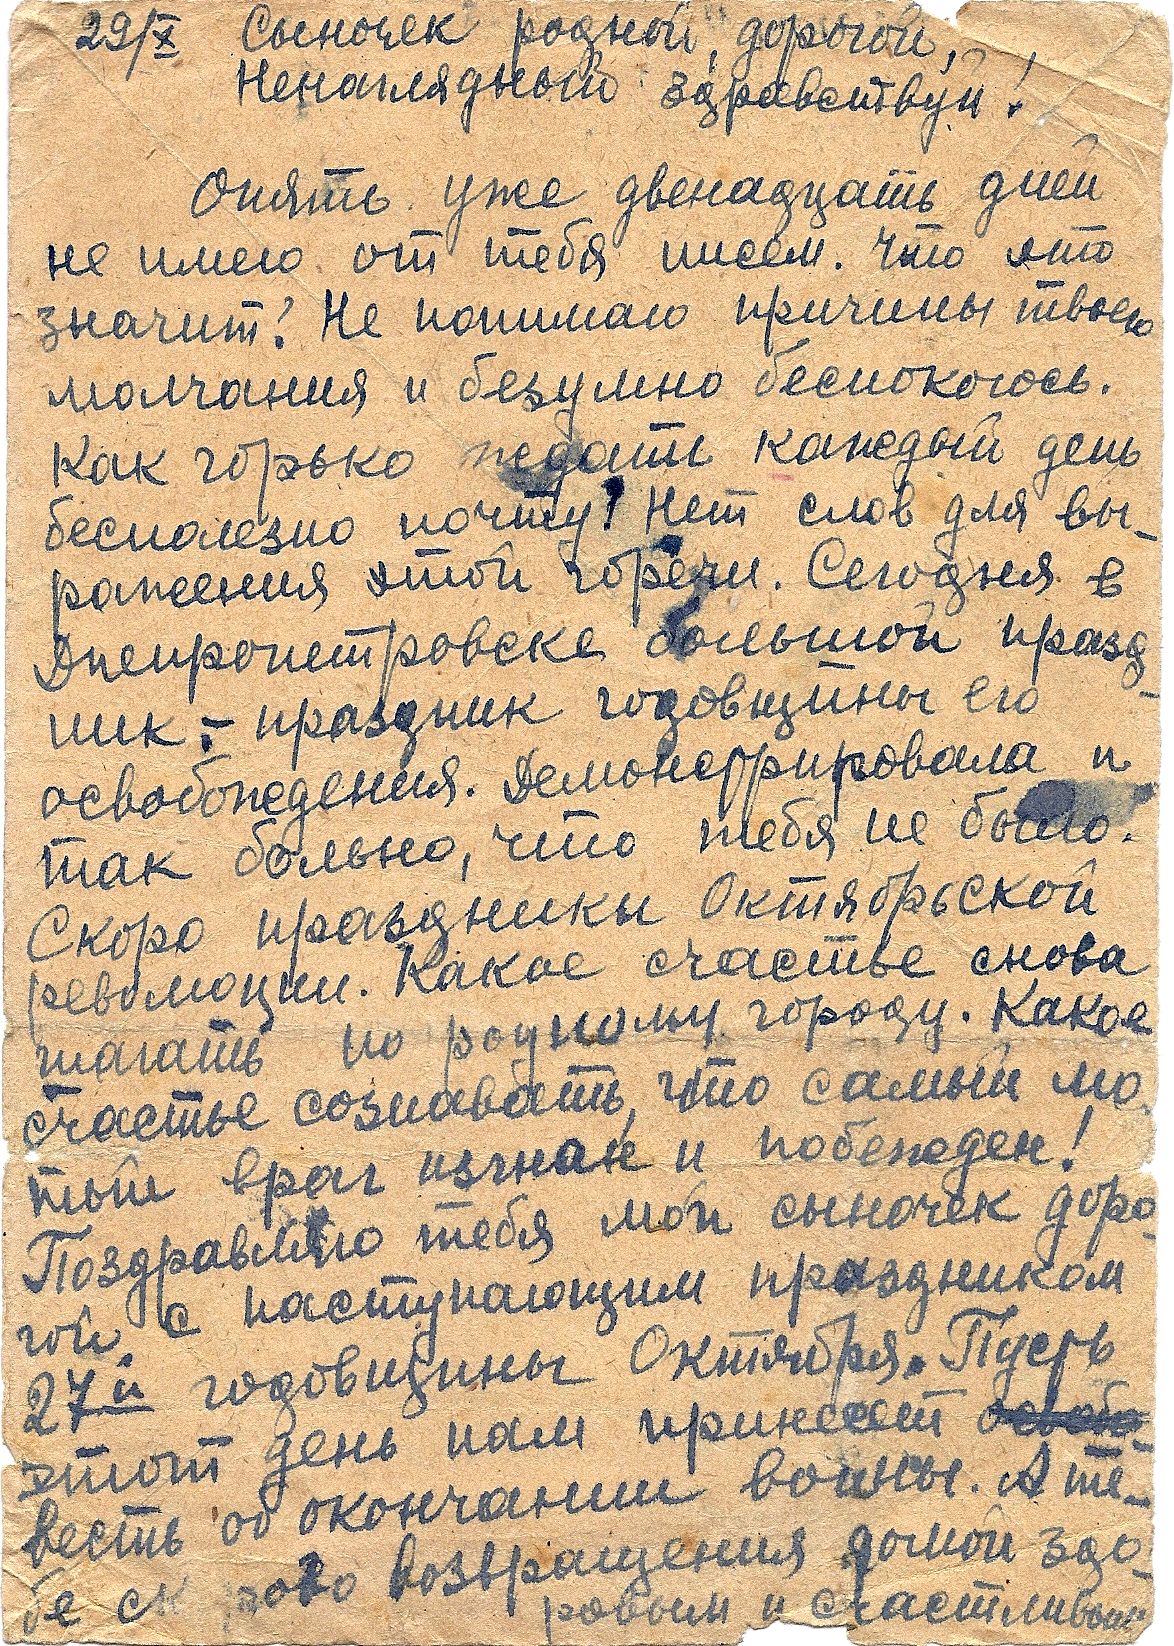 29/X Сыночек родной, дорогой,
Ненаглядный здравствуй!
Опять уже двенадцать дней
не имею от тебя писем. Что это
значит? Не понимаю причины твоего
молчания и безумно беспокоюсь.
Как горько ждать каждый день
бесполезно почту! Нет слов для вы-
ражения этой горечи. Сегодня в
Днепропетровске большой празд-
ник - праздник годовщины его
освобождения. Демонстрировала и
так больно, что тебя не было.
Скоро праздники Октябрьской
революции. Какое счастье снова
шагать по родному городу. Какое
счастье сознавать, что самый лю-
тый враг изгнан и побежден!
Поздравляю тебя мой сыночек доро-
гой с наступающим праздником
27й годовщины Октября. Пусть
этот день нам принесет
весть об окончании войны. А те-
бе скорого возвращения домой здо-
ровым и счастливым